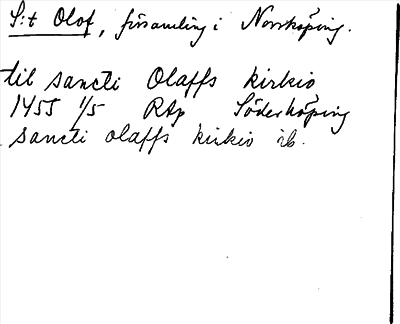 S:t Olof, församling i Norrköping.
til sancti Olaffs kirkio
1455 1/5 RAp Söderköping
sancti olaffs kirkio ib.